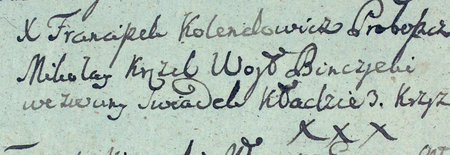 X Franciszek Kolendowicz Proboszcz
Mikołay Krzel Woyt Binczycki
wezwany Swiadek Kładzie 3. Krzyz
X X X